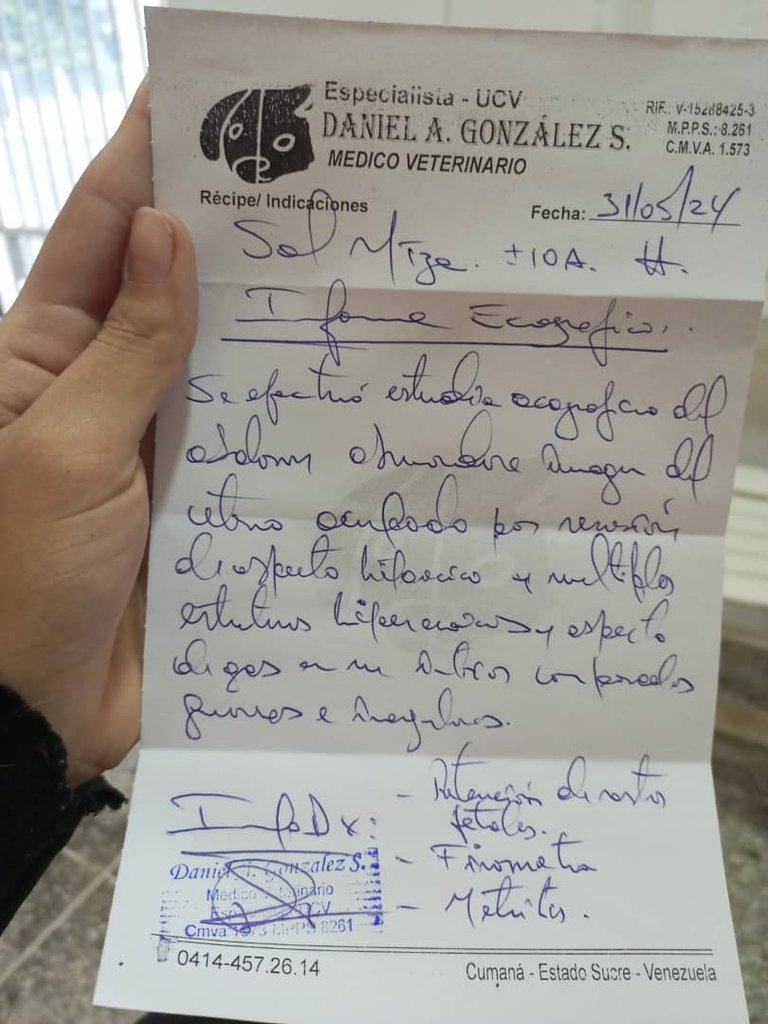 Especialista - UCV
DANIEL A. GONZÁLEZ S.
MEDICO VETERINARIO
RIF.: V-15288425-3
M.P.P.S.: 8.261
C.M.V.A. 1.573
Récipe/ Indicaciones
Fecha: 31/05/24
Sol Mtze. ±10A. H.
Informe Ecografico.
Se efectuó estudio ecografico del
abdomen imagen del
utero ocupado por
de aspecto y multiples
y aspecto
de gas en su con paredes
gruesas e irregulares.
InfoDx:
- Retención de restos
fetales.
- Piometra
- Metritis.
Daniel A. Gonzalez S.
Medico Veterinario
Especialista UCV
Cmva 1573 MPPS 8261
0414-457.26.14
Cumaná - Estado Sucre - Venezuela